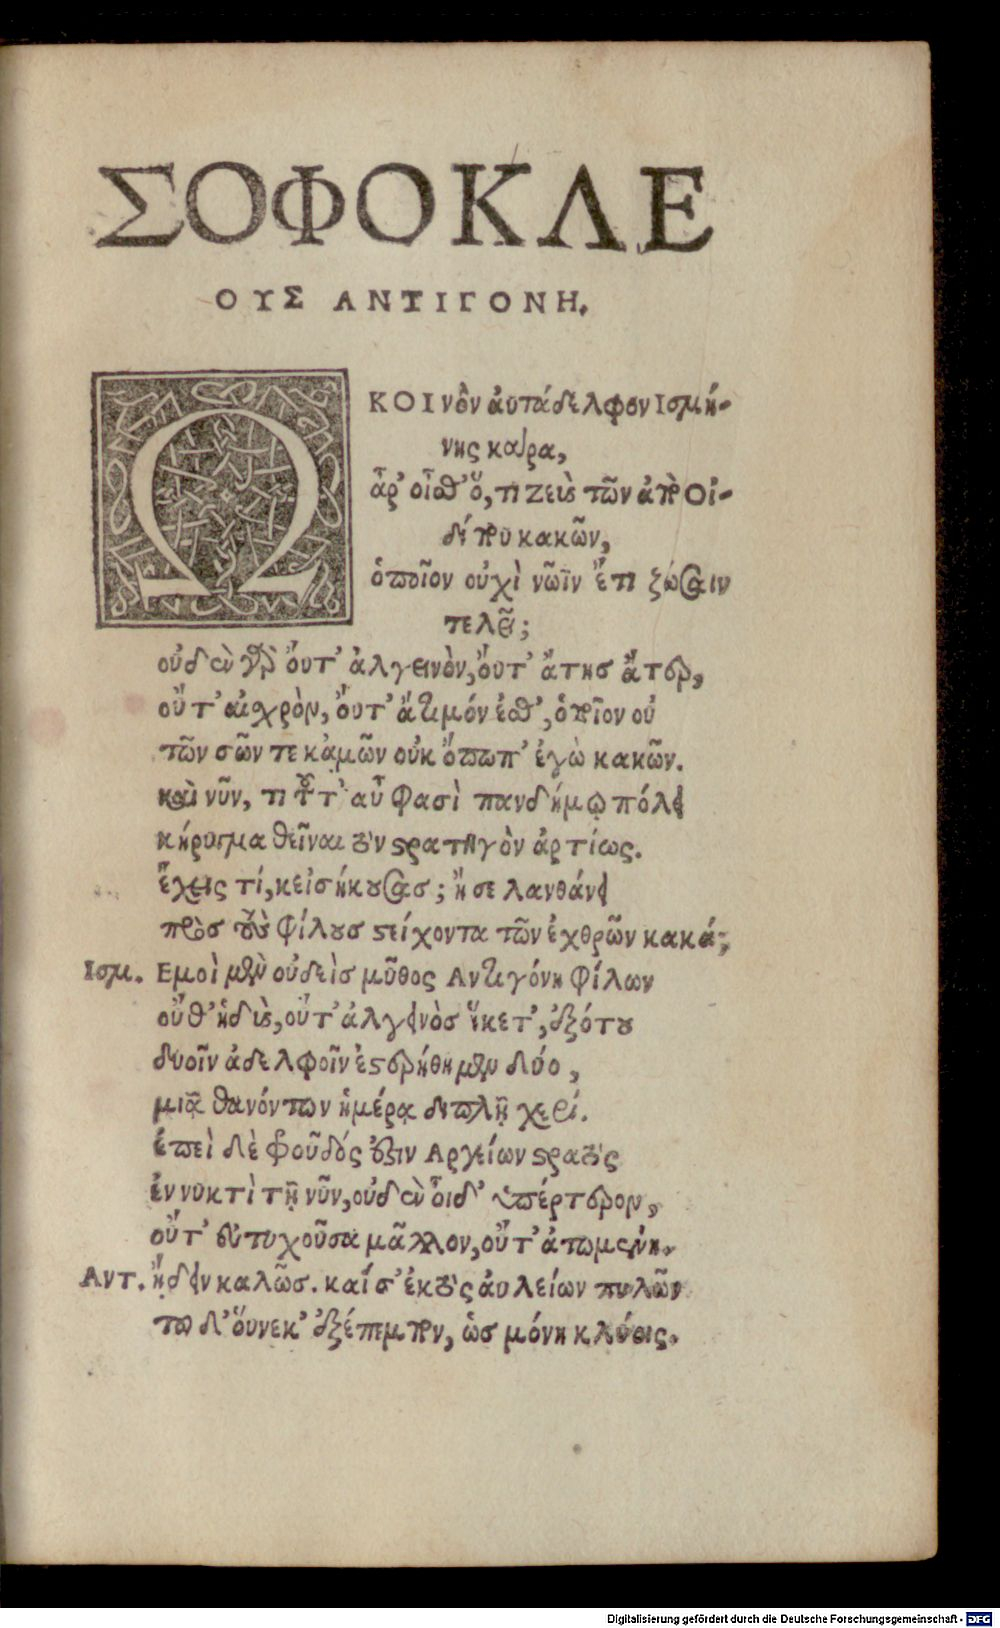 ΣΟΦΟΚΛΕ
ΟΥΣ ΑΝΤΙΓΟΝΗ.
Ω ΚΟΙνὸν ἀυτάδελφον Ισμή-
νης κάρα,
ἆρ' οἶσθ' ὅ, τι Ζεὺς τῶν ἀπ' Οἰ-
δίπου κακῶν,
ὁποῖον οὐχὶ νῶϊν ἔτι ζώσαιν
τελεῖ;
οὐδὲν γὰρ ὄυτ' ἀλγεινὸν, ὄυτ' ἄτησ ἄτερ,
οὔτ' αἰσχρὸν, ὄυτ' ἄτιμόν ἐσθ', ὁποῖον οὐ
τῶν σῶν τε κἀμῶν οὐκ ὄπωπ' ἐγὼ κακῶν.
καὶ νῦν, τι τοῦτ' αὖ φασὶ πανδήμῳ πόλει
κήρυγμα θεῖναι τὸν στρατηγὸν ἀρτίως.
ἔχεις τί, κεἰσήκουσασ; ἤ σε λανθάνει
πρὸσ τοὺς φίλουσ στείχοντα τῶν ἐχθρῶν κακά;
Ισμ. Εμοὶ μὲν οὐδεὶσ μῦθος Αντιγόνη φίλων
οὔθ' ἡδὺς, οὔτ' ἀλγεινὸσ ἵκετ', ἐξότου
δυοῖν ἀδελφοῖν ἐστερήθημεν δύο,
μιᾷ θανόντων ἡμέρᾳ διπλῇ χερί.
ἐπεὶ δὲ φροῦδός ἐστιν Αργείων στρατὸς
ἐν νυκτὶ τῇ νῦν, οὐδὲν οἶδ' ὑπέρτερον,
οὔτ' εὐτυχοῦσα μᾶλλον, οὔτ' ἀτωμένη.
Αντ. ᾔδειν καλῶσ. καί σ' ἐκτὸς ἀυλείων πυλῶν
τῶ δ' ὅυνεκ' ἐξέπεμπον, ὡσ μόνη κλύοις.
Digitalisierung gefördert durch die Deutsche Forschungsgemeinschaft - DFG